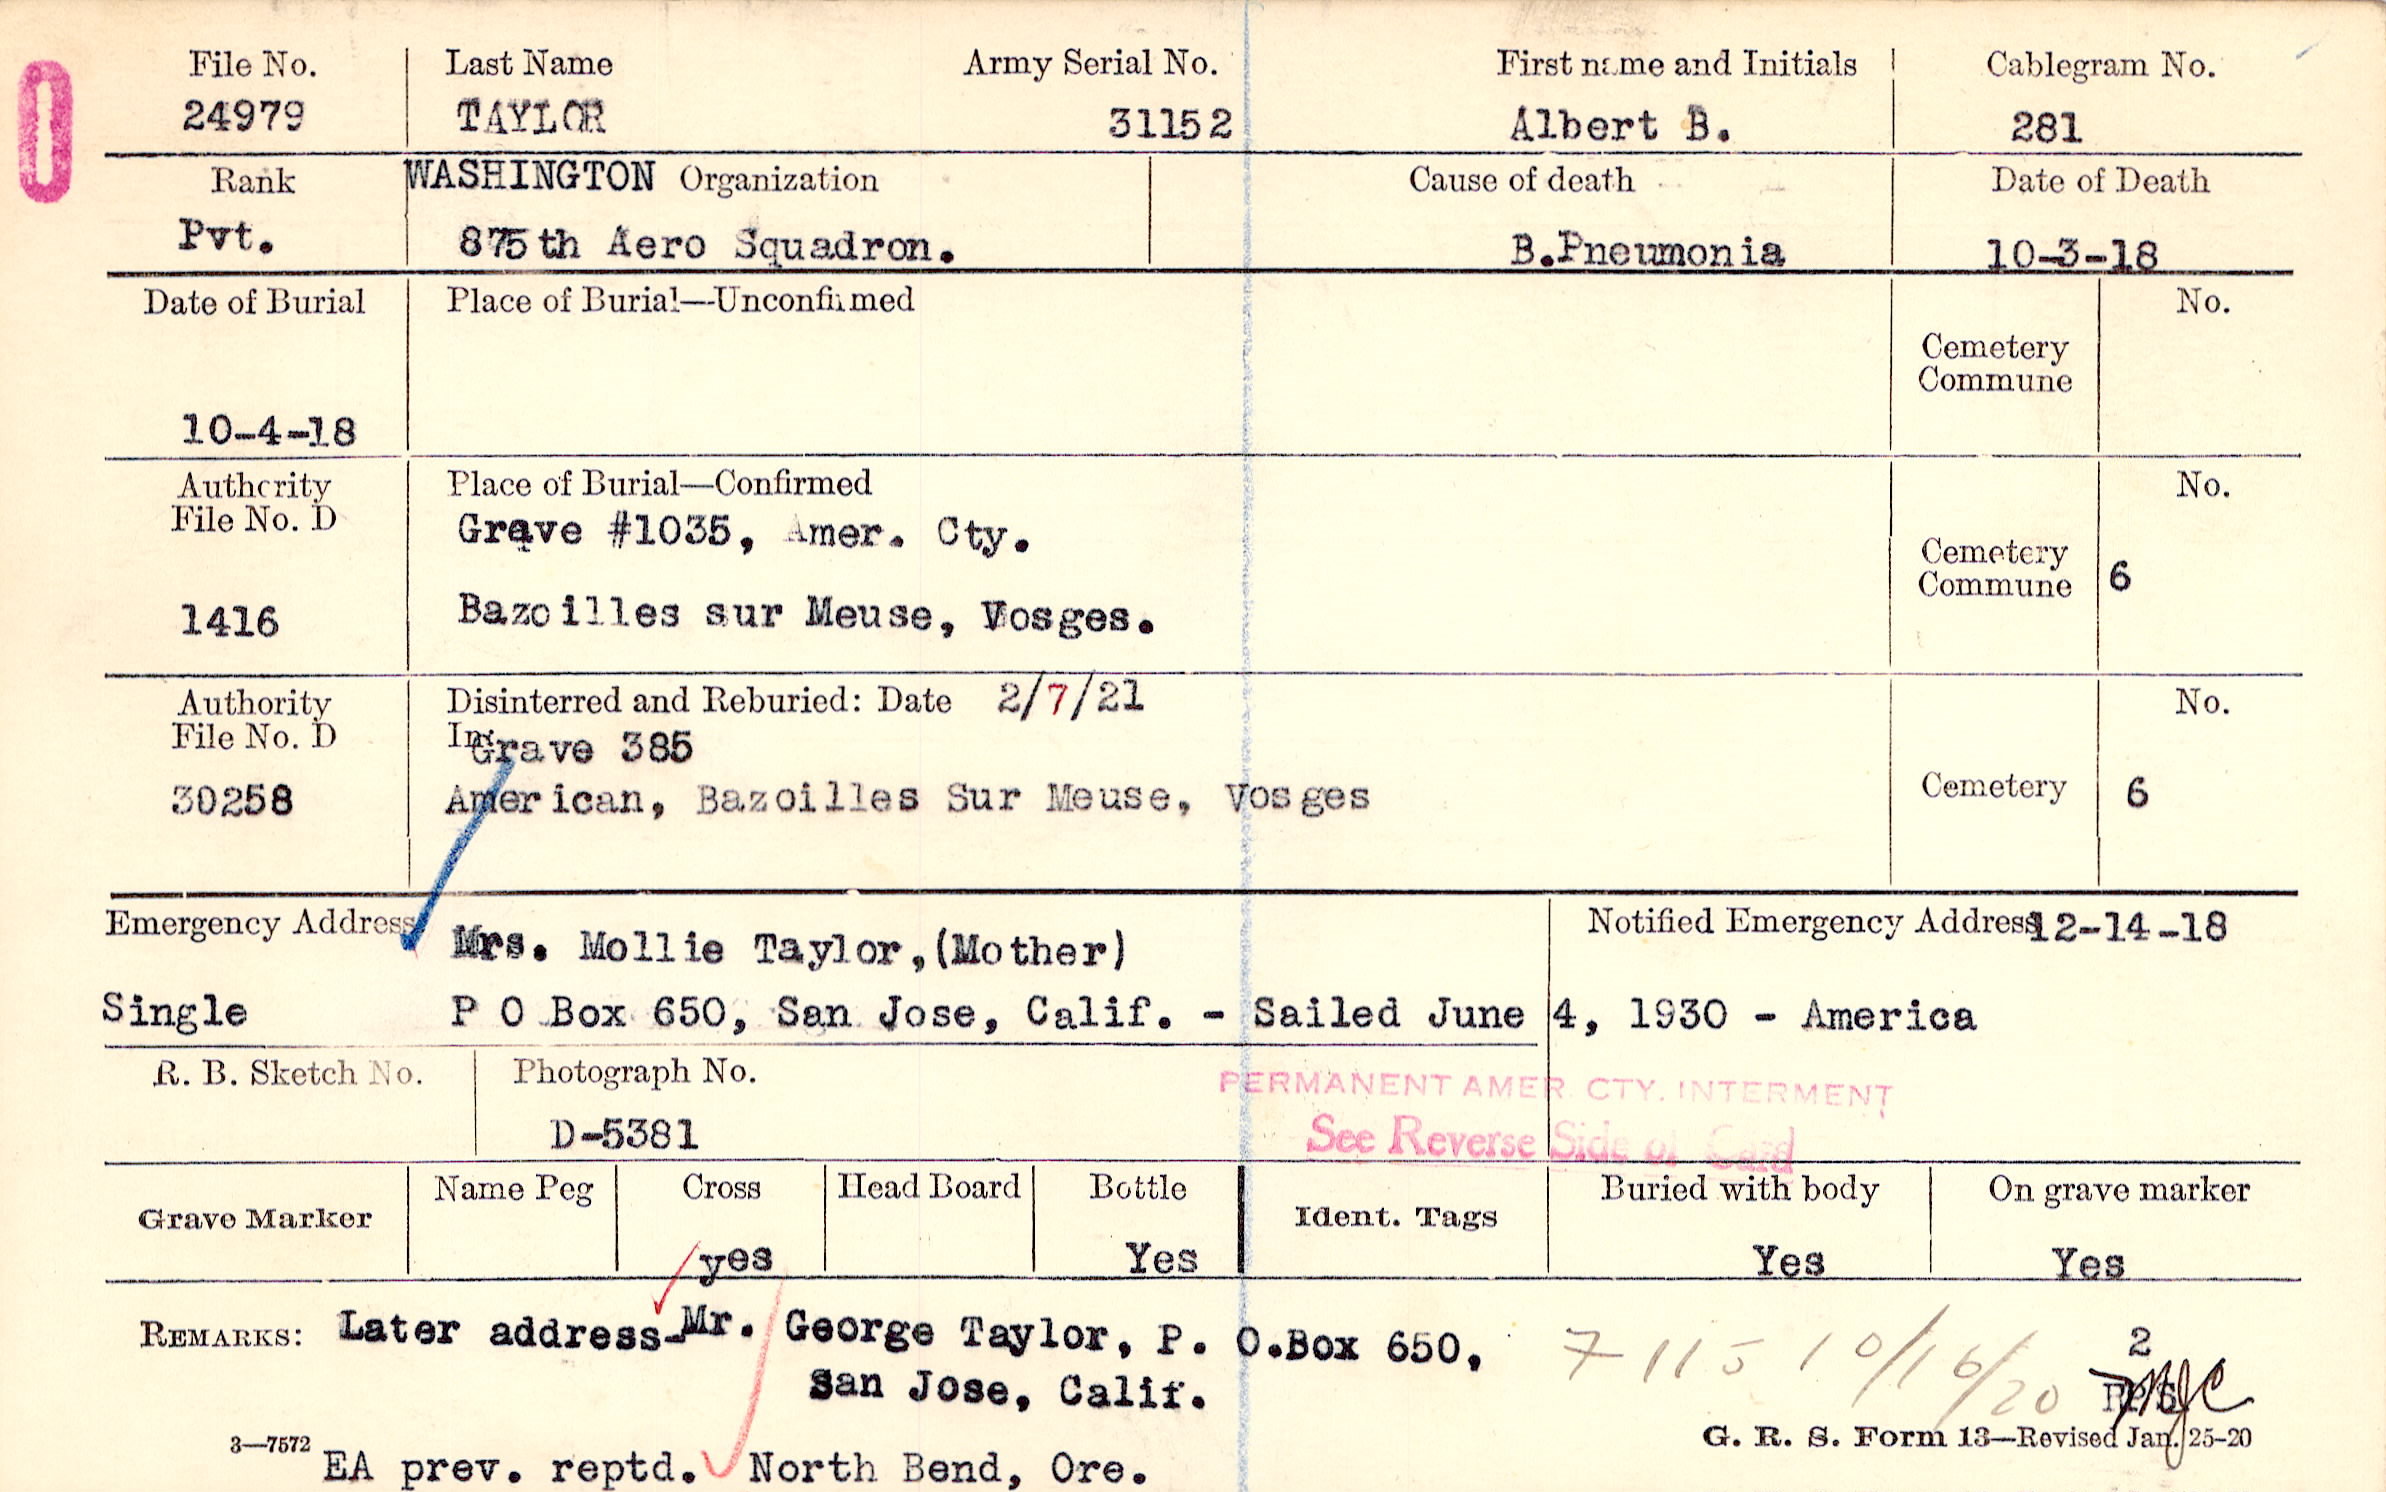 File No. Last Name Army Serial No. First name and Initials Cablegram No.
24979 TAYLOR 31152 Albert B. 281
Rank WASHINGTON Organization Cause of death Date of Death
Pvt. 875th Aero Squadron. B.Pneumonia 10-3-18
Date of Burial Place of Burial—Unconfirmed No.
Cemetery
Commune
10-4-18
Authority Place of Burial—Confirmed No.
File No. D Grave #1035, Amer. Cty.
Cemetery
Commune 6
1416 Bazoilles sur Meuse, Vosges.
Authority Disinterred and Reburied: Date 2/7/21 No.
File No. D In: Grave 385
30258 American, Bazoilles Sur Meuse, Vosges Cemetery 6
Emergency Address Mrs. Mollie Taylor,(Mother) Notified Emergency Address 12-14-18
Single P O Box 650, San Jose, Calif. - Sailed June 4, 1930 - America
R. B. Sketch No. Photograph No.
PERMANENT AMER. CTY. INTERMENT
D-5381 See Reverse Side of Card
Grave Marker Name Peg Cross Head Board Bottle Ident. Tags Buried with body On grave marker
yes Yes Yes Yes
REMARKS: Later address-Mr. George Taylor, P. O.Box 650, 7 115 10/16/20 2
San Jose, Calif.
G. R. S. Form 13—Revised Jan. 25-20
3—7572 EA prev. reptd. North Bend, Ore.